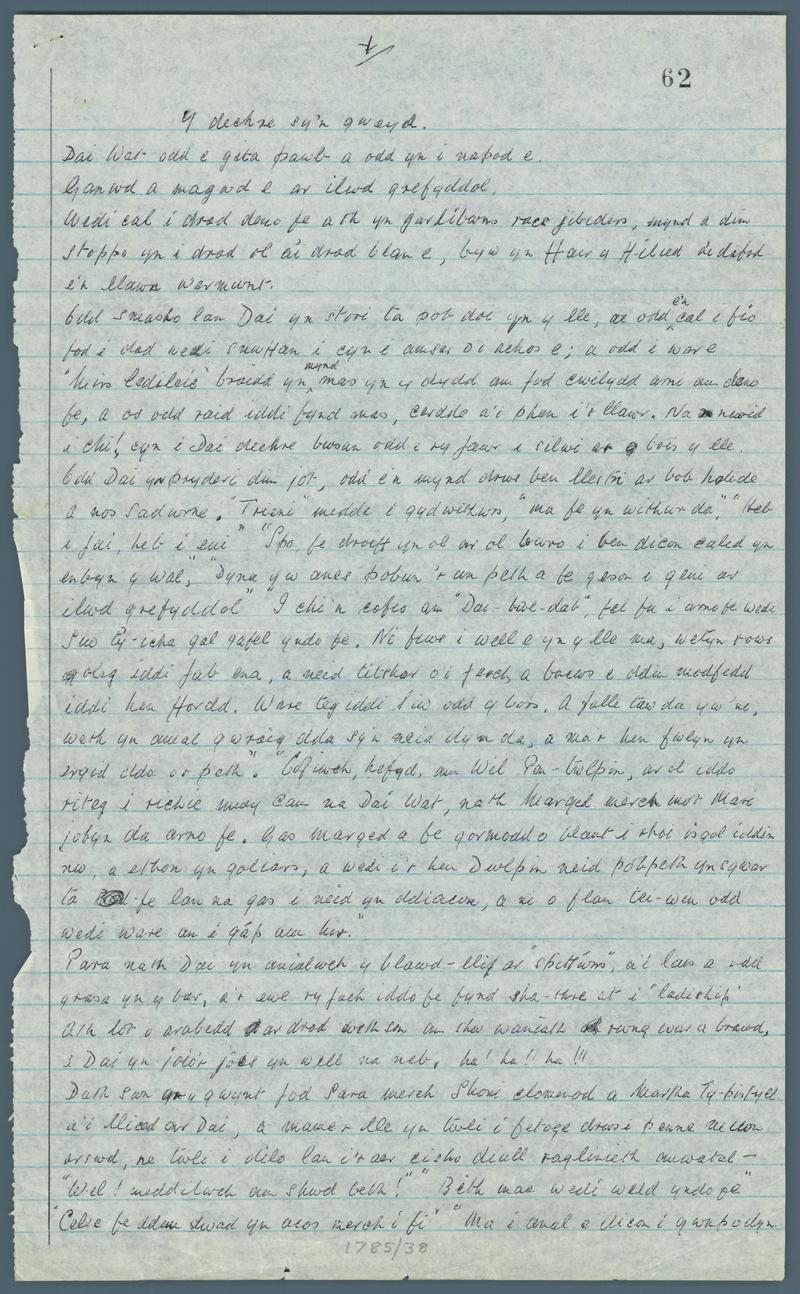 62
Y dechre sy'n gweyd.
Dai Wat odd e gita pawb a odd yn i napod e.
Ganwd a magwd e ar ilwd grefyddol.
Wedi cal i drad deno fe ath yn garlibwns race jibiders, mynd a dim
stoppo yn i drad ol a'i drad blan e, byw yn Hair y Hilied a'i dafod
e'n llawn wermwnt.
Odd smasho lan Dai yn stori ta pob doi yn y lle, ac odd e'n cal i fio
fod i dad wedi i cyn i amser o'i achos e; a odd i ware
braidd yn mynd mas yn y dydd am fod cwilydd arni am deno
fe, a os odd raid iddi fynd mas, cerdde a'i phen i'r llawr. Na newid
i chi! cyn i Dai dechre bwsan odd i ry fawr i silwi ar bois y lle.
Odd Dai yn pryderi dim jot, odd e'n mynd drws ben llestri ar bob holide
a nos Sadwrne. "Trieni" medde i gydwithwrs, "ma fe yn withwr da", "Heb
i fai, heb i eni" "Spo fe drooff yn ol ar ol bwro i ben dicon caled yn
erbyn y wal," "Dyna yw anes pobun 'r un peth a fe geson i geni ar
ilwd grefyddol" "I chi'n cofio am "Dai-bwe-dab", fel fu i arno fe wedi
Siw Ty-icha gal gafel yndo fe. Ni fuws i well e yn y lle ma, wetyn rows
goleg iddi fab ena, a neid titshar o'i ferch, a baews e ddim modfedd
iddi hen ffordd. Ware teg iddi Siw odd y bors. A falle taw da yw 'ne,
wath yn amal gwraig dda sy'n neid dyn da, a ma'r hen fwlyn yn
ergid iddo o'r peth". "Cofiwch, hefyd, am Wil Pen-twlpin, ar ol iddo
riteg i richie mwy cam na Dai Wat, nath Marged merch mot Mari
jobyn da arno fe. Gas Marged a fe gormodd o blant i rhoi isgol iddin
nw, a ethon yn goliars, a wedi i'r hen Dwlpin neid pobpeth yn sgwar
ta fe lan na gas i neid yn ddiacon, a ni o flan tei-wen odd
wedi ware am i gâp am hir."
Para nath Dai yn anialwch y blawd-llif a'r "spittwns", a'i laes a odd
grasa yn y bar, a'r ewe ry fach iddo fe fynd sha-thre at i "ladiship"
Ath lot o arabedd ar drod wethon am shw waniath rwng war a brawd,
a Dai yn joio'r jôcs yn well na neb. ha! ha!! ha!!!
Dath swn yn y gwynt fod Sara merch Shoni clomenod a Martha Ty-pistyll
a'i lliced ar Dai, a mame'r lle yn twli i fetoge drwsi penne
arswd, ne twli i dilo lan i'r aer cisho diall ragliniath anwatal -
"Wel! meddilwch am shwd beth!" "Beth mae wedi weld yndo fe"
"Celse fe ddim dwad yn acos merch i fi" "Ma i anal e dicon i gwnpo dyn
1785/38